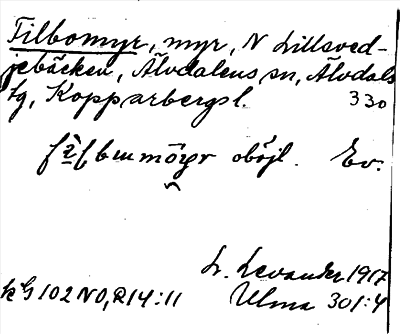 Tilbomyr, myr, N Lillsved-
jebäcken, Älvdalens sn, Älvdals
tg, Kopparbergs l. 330
oböjl. Ev.
L. Levander 1917
kG 102 NO, R14:11 Ulma 301:4